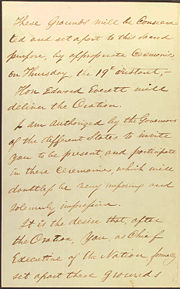 These Grounds will be Consecra
ted and set apart to this Sacred
purpose, by appropriate Ceremonies
on Thursday, the 19th instant,—
Hon Edward Everett will
deliver the Oration.
I am authorized by the Governors
of the different States to invite
you to be present, and participate
in these Ceremonies, which will
doubtless be very imposing and
solemnly impressive.
It is the desire that, after
the Oration, You, as Chief
Executive of the Nation formally
set apart these grounds